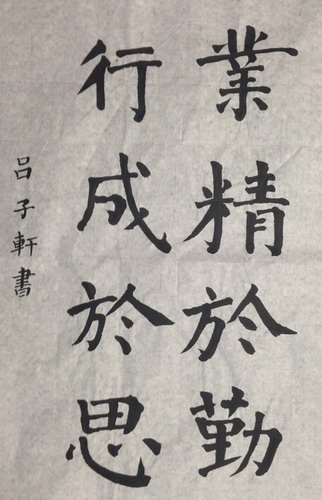 業精於勤
行成於思
吕子軒書